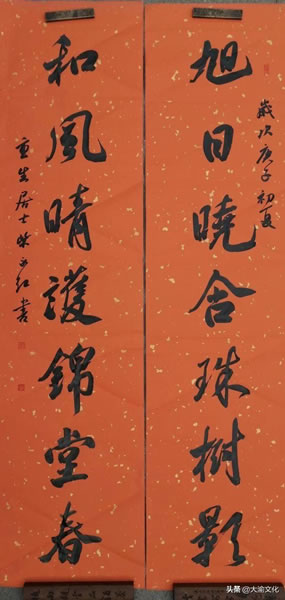 歲次庚子初夏
旭日曉含珠樹影
和風晴護錦堂春
重生居士 紅書
头条 @大渝文化